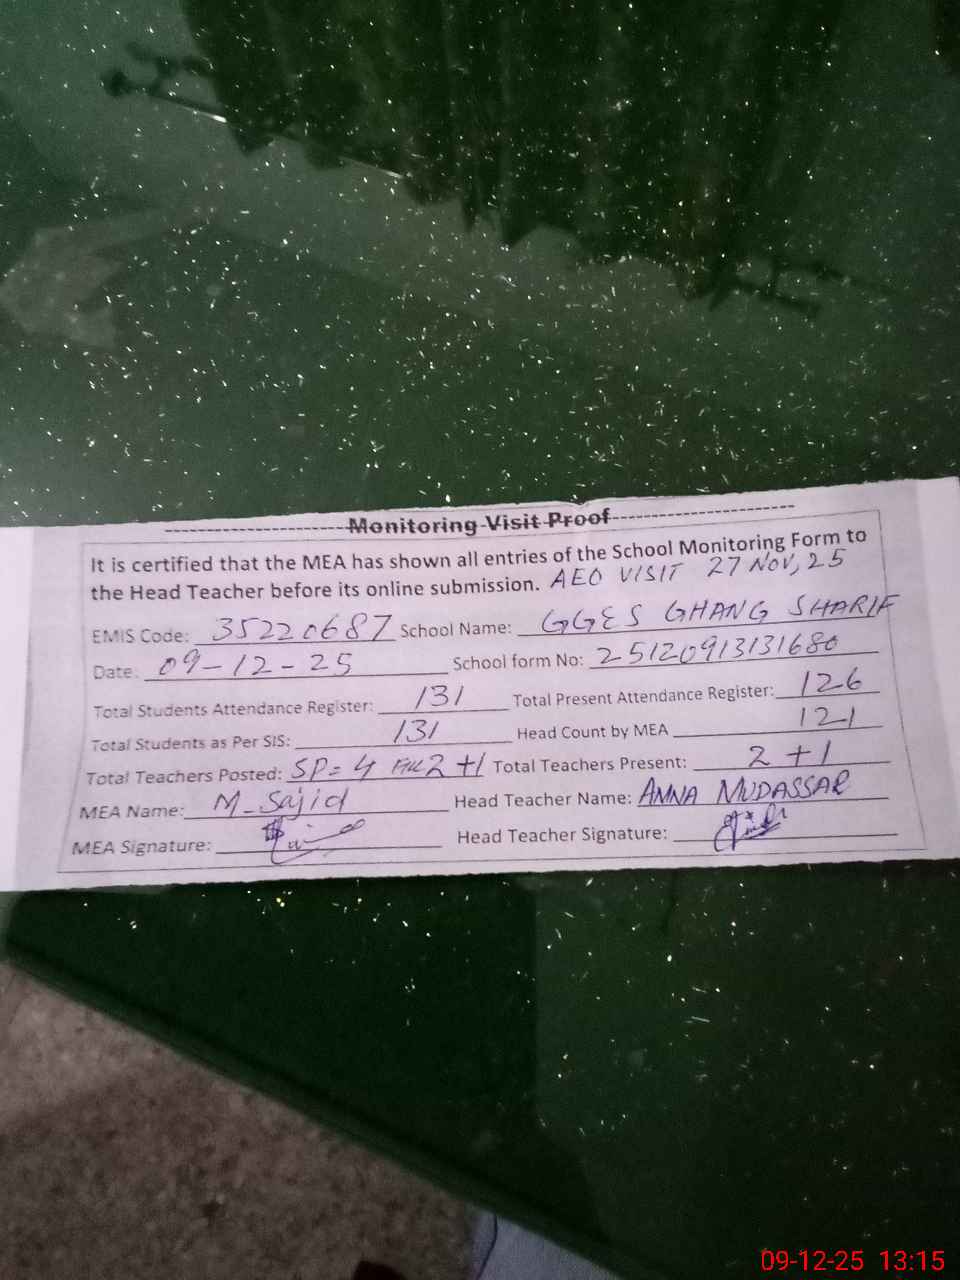 Monitoring Visit Proof
It is certified that the MEA has shown all entries of the School Monitoring Form to
the Head Teacher before its online submission. AEO VISIT 27 NOV, 25
EMIS Code: 35220687 School Name: GGES GHANG SHARIF
Date: 09-12-25 School form No: 25120913131680
Total Students Attendance Register: 131 Total Present Attendance Register: 126
Total Students as Per SIS: 131 Head Count by MEA 121
Total Teachers Posted: SP=4 2+1 Total Teachers Present: 2+1
MEA Name: M-Sajid Head Teacher Name: AMNA MUDASSAR
MEA Signature: Head Teacher Signature:
09-12-25 13:15